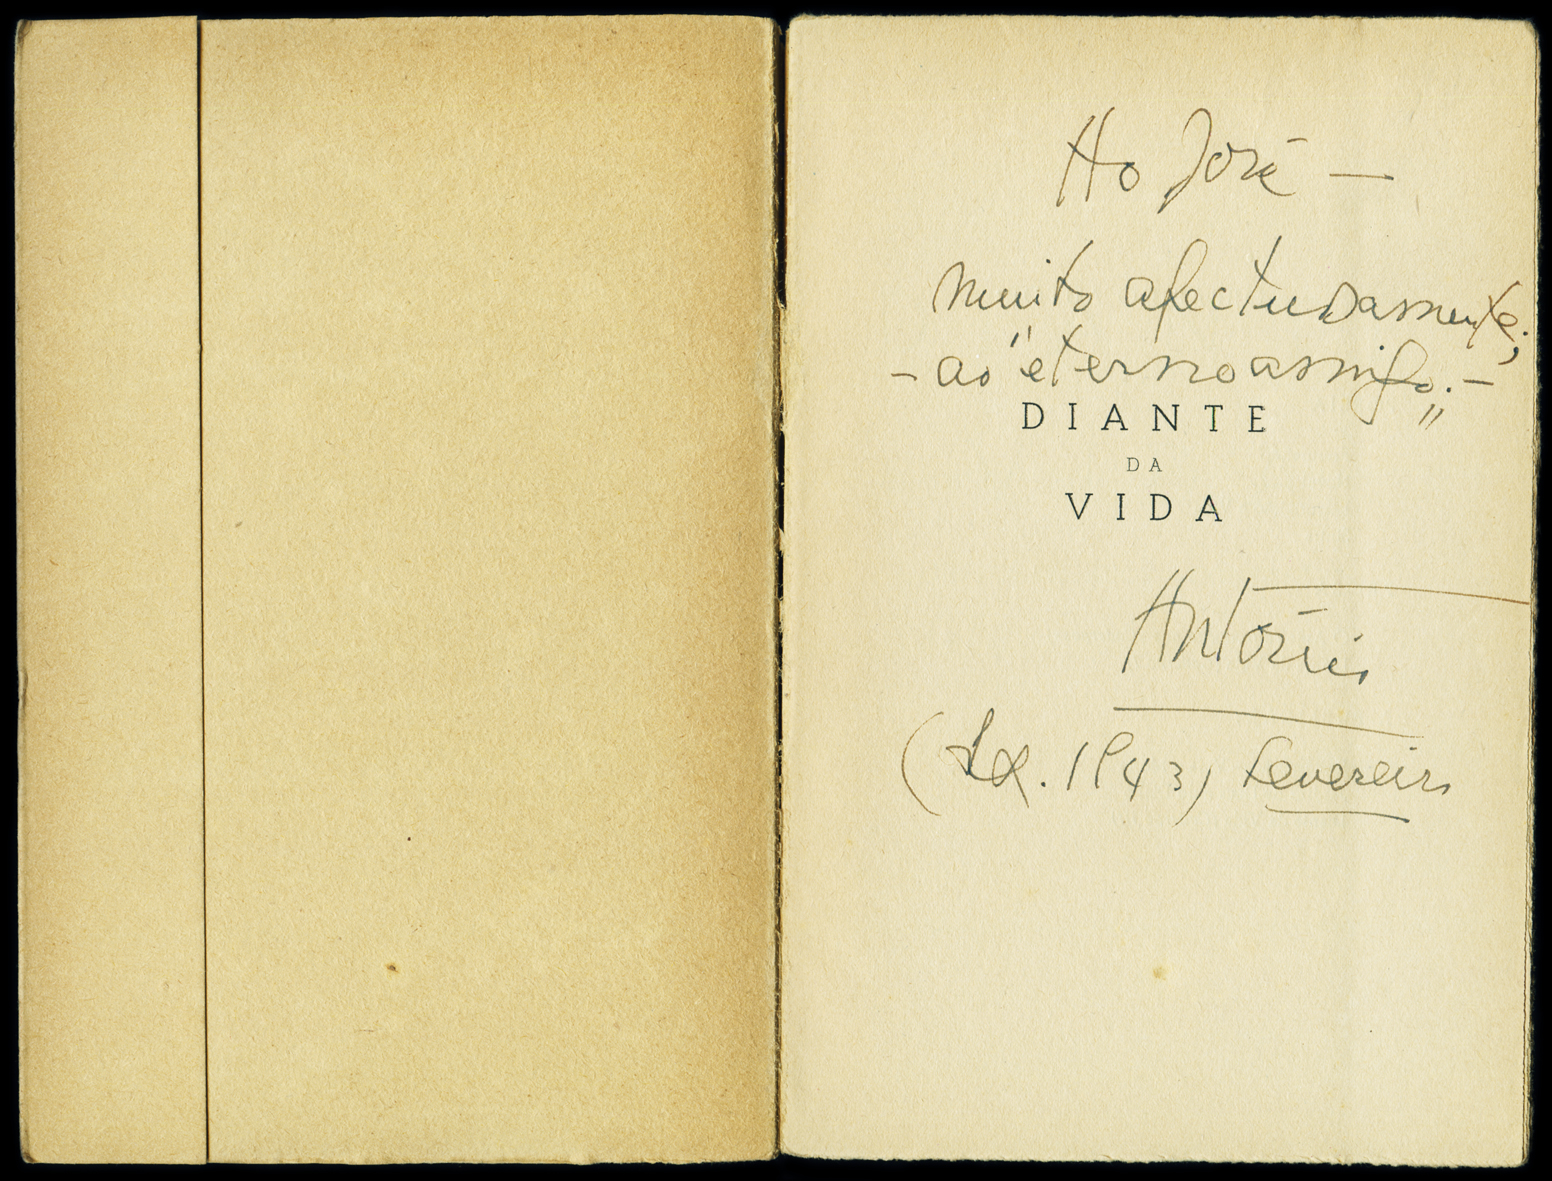 Ao José —
muito afectuosamente;
— ao "eterno amigo". —
DIANTE
DA
VIDA
António
(Lx. 1943) Fevereiro